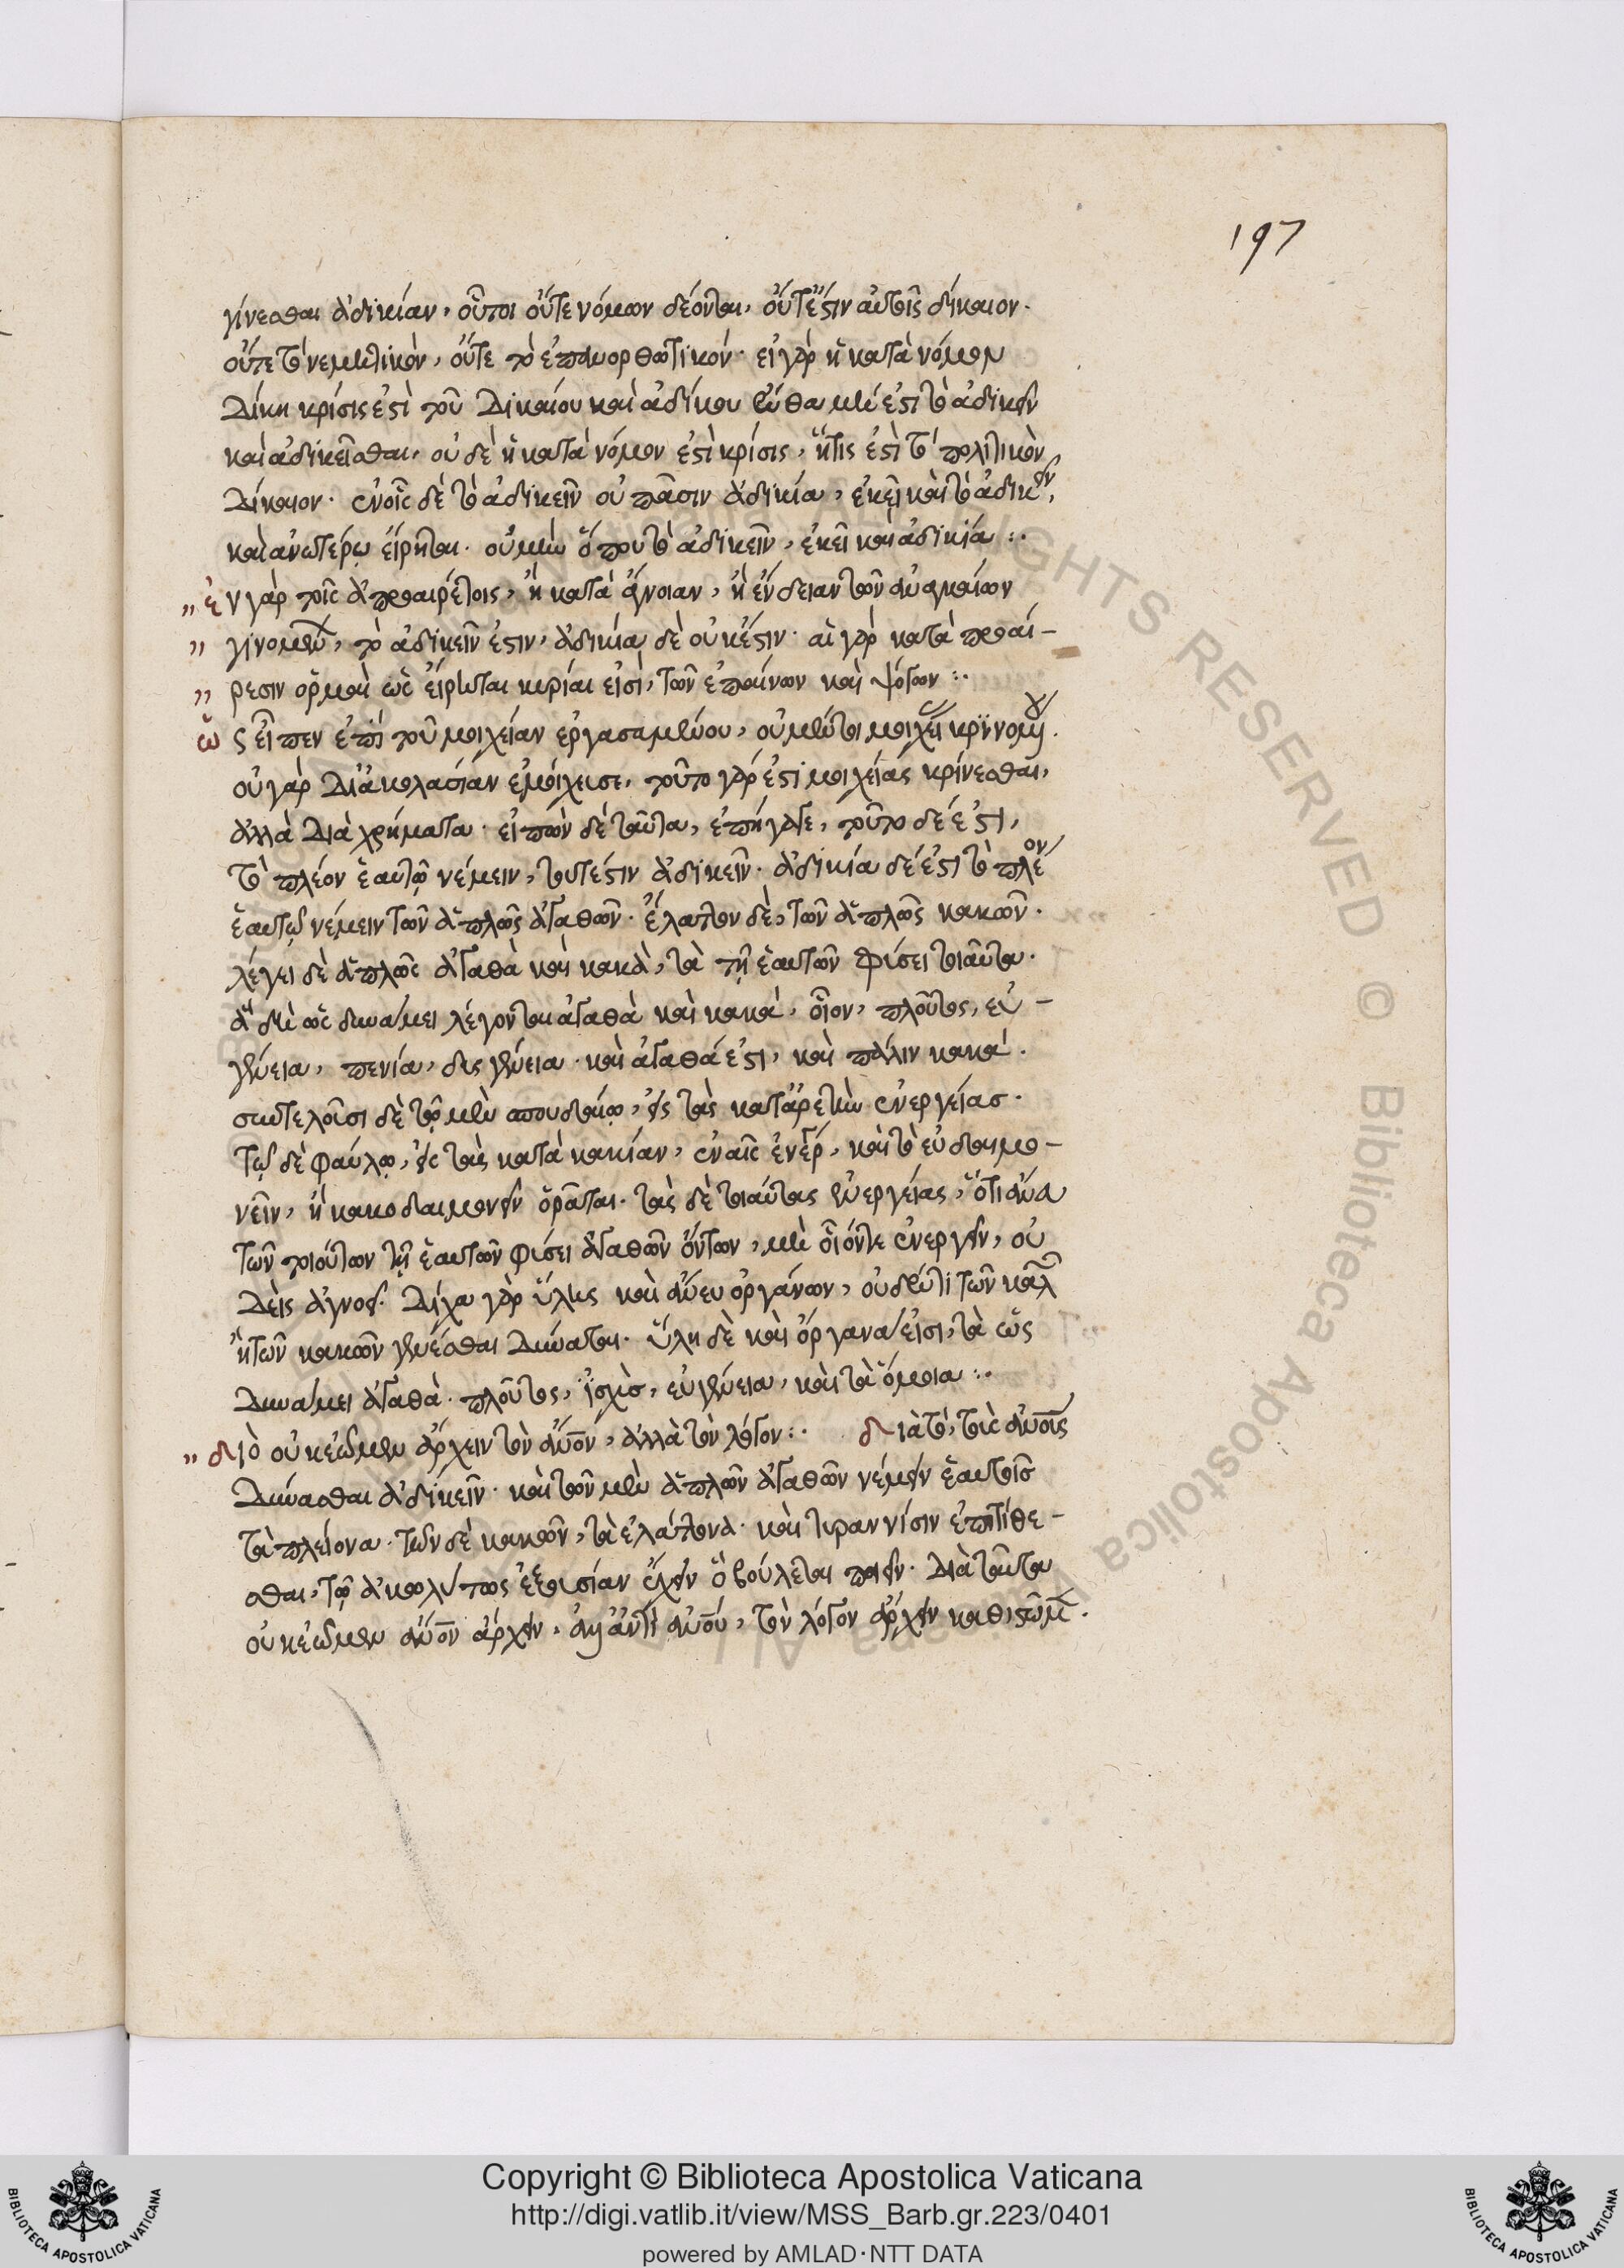 197
γίνεσθαι ἀδικίαν, οὗτοι οὔτε νόμων δέονται, οὔτέστιν αὐτοῖς δίκαιον.
οὔτε τὸ νεμητικὸν, οὔτε τὸ ἐπανορθωτικόν. εἰ γὰρ ἡ κατὰ νόμον
Δίκη κρίσις ἐστὶ τοῦ Δικαίου καὶ ἀδίκου ἔνθα μή ἐστι τὸ ἀδικεῖν
καὶ ἀδικεῖσθαι, οὐδὲ ἡ κατὰ νόμον ἐστὶ κρίσις, ἥτις ἐστὶ τὸ πολιτικὸν
Δίκαιον. ἐν οἷς δὲ τὸ ἀδικεῖν οὐ πᾶσιν ἀδικία, ἐκεῖ καὶ τὸ ἀδικεῖν,
καὶ ἀνωτέρω εἴρηται. οὐ μὴν ὅπου τὸ ἀδικεῖν, ἐκεῖ καὶ ἀδικία :.
„ ἐν γὰρ τοῖς ἀπροαιρέτοις, ἢ κατὰ ἄγνοιαν, ἢ ἔνδειαν τῶν ἀναγκαίων
„ γινομένων, τὸ ἀδικεῖν ἐστιν, ἀδικία δὲ οὐκέστιν. αἱ γὰρ κατὰ προαί-
„ ρεσιν ὁρμαὶ ὡς εἴρηται κυρίαι εἰσὶ, τῶν ἐπαίνων καὶ ψόγων :.
ὥς εἶπεν ἐπὶ τοῦ μοιχείαν ἐργασαμένου, οὐ μέντοι μοιχείας κρινομένου.
οὐ γὰρ Διἀκολασίαν ἐμοίχευσε, τοῦτο γάρ ἐστι μοιχείας κρίνεσθαι,
ἀλλὰ Διὰ χρήματα. εἰπὼν δὲ ταῦτα, ἐπήγαγε, τοῦτο δέ ἐστι,
τὸ πλέον ἑαυτῷ νέμειν, τουτέστιν ἀδικεῖν. ἀδικία δέ ἐστι τὸ πλέον
ἑαυτῷ νέμειν τῶν ἁπλῶς ἀγαθῶν. ἔλαττον δὲ, τῶν ἁπλῶς κακῶν.
λέγει δὲ ἁπλῶς ἀγαθὰ καὶ κακὰ, τὰ τῇ ἑαυτῶν φύσει τοιαῦτα.
ἃ δὴ ὡς δυνάμει λέγονται ἀγαθὰ καὶ κακά, οἷον, πλοῦτος, εὐ-
γένεια, πενία, δυσγένεια. καὶ ἀγαθά ἐστι, καὶ πάλιν κακά.
συντελοῦσι δὲ τῷ μὲν σπουδαίῳ, εἰς τὰς κατἀρετὴν ἐνεργείας.
Τῷ δὲ φαύλῳ, εἰς τὰς κατὰ κακίαν, ἐν αἷς καὶ τὸ εὐδαιμο-
νεῖν, ἢ κακοδαιμονεῖν ὁρᾶται. τὰς δὲ τοιαύτας ἐνεργείας, ὅτι ἄνευ
τῶν τοιούτων τῇ ἑαυτῶν φύσει ἀγαθῶν ὄντων, μὴ οἷόντε ἐνεργεῖν, οὐ
Δεὶς ἀγνοεῖ. Δίχα γὰρ ὕλης καὶ ἄνευ ὀργάνων, οὐδέν τι τῶν καλῶν
ἢ τῶν κακῶν γενέσθαι Δύναται. ὕλη δὲ καὶ ὄργανα εἰσι, τὰ ὡς
Δυνάμει ἀγαθὰ. πλοῦτος, ἰσχὺς, εὐγένεια, καὶ τὰ ὅμοια :.
„ διὸ οὐκ ἐῶμεν ἄρχειν τὸν ἄνον, ἀλλὰ τὸν λόγον :. διὰ τὸ, τοὺς ἀνους
Δύνασθαι ἀδικεῖν. καὶ τῶν μὲν ἁπλῶν ἀγαθῶν νέμειν ἑαυτοῖς
Τὰ πλείονα. τῶν δὲ κακῶν, τὰ ἐλάττονα. καὶ τυραννίσιν ἐπιτίθε-
σθαι, τῷ ἀκωλύτως ἐξουσίαν ἔχειν ὃ βούλεται ποιεῖν. Διὰ ταῦτα
οὐκ ἐῶμεν ἄνον ἄρχειν, ἀλλἀντὶ ἀνου, τὸν λόγον ἄρχειν καθιστῶμεν.
Copyright © Biblioteca Apostolica Vaticana
http://digi.vatlib.it/view/MSS_Barb.gr.223/0401
powered by AMLAD·NTT DATA